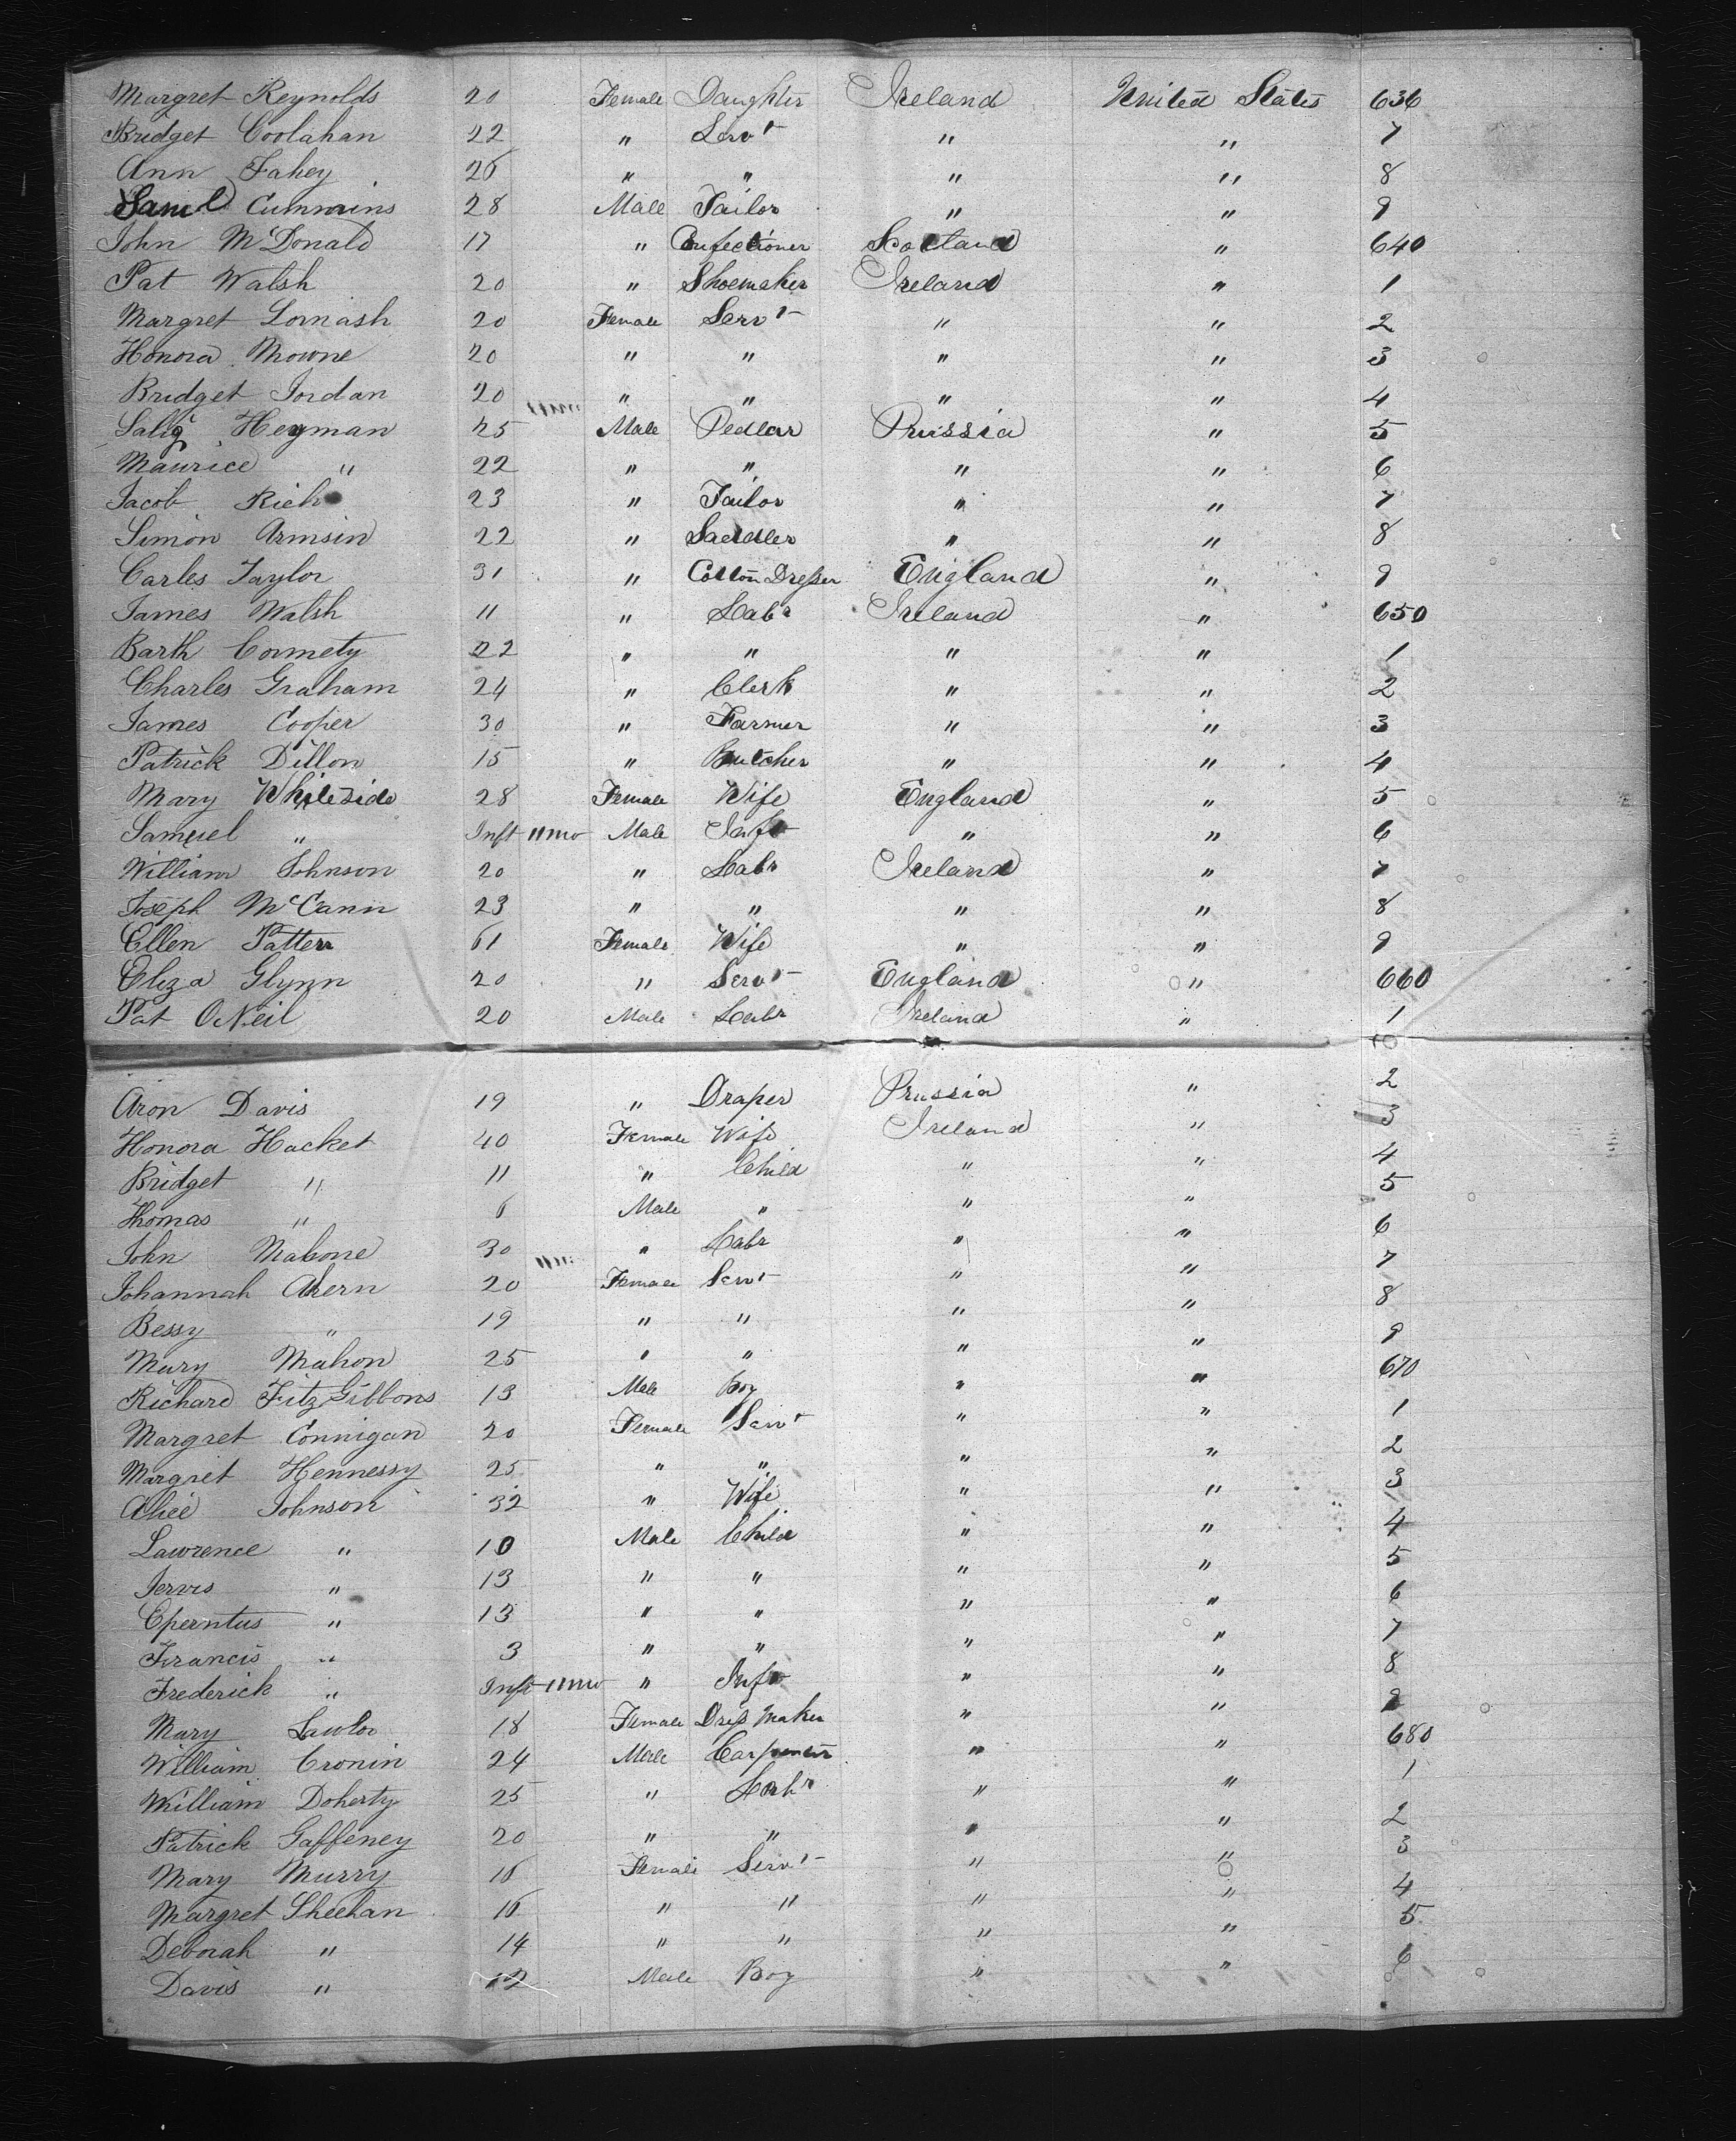 Margret Reynolds 20 Female Daughter Ireland United States 636
Bridget Coolahan 22 " Servt " " 7
Ann Fahey 26 " " " " 8
Saml Cummins 28 Male Tailor " " 9
John McDonald 17 " Confectioner Scotland " 640
Pat Walsh 20 " Shoemaker Ireland " 1
Margret Lomash 20 Female Servt " " 2
Honora Mowne 20 " " " " 3
Bridget Jordan 20 " " " " 4
Salig Heyman 25 Male Pedlar Prussia " 5
Maurice " 22 " " " " 6
Jacob Rich 23 " Tailor " " 7
Simon Armsin 22 " Saddler " " 8
Carles Taylor 31 " Cotton Dresser England " 9
James Walsh 11 " Labr Ireland " 650
Barth Cormety 22 " " " " 1
Charles Graham 24 " Clerk " " 2
James Cooper 30 " Farmer " " 3
Patrick Dillon 15 " Butcher " " 4
Mary Whiteside 28 Female Wife England " 5
Samuel " Inft 11 mo Male Inft " " 6
William Johnson 20 " Labr Ireland " 7
Joseph McCann 23 " " " " 8
Ellen Patter 61 Female Wife " " 9
Eliza Glynn 20 " Servt England " 660
Pat ONeil 20 Male Labr Ireland " 1
Aron Davis 19 " Draper Prussia " 2
Honora Hacket 40 Female Wife Ireland " 3
Bridget " 11 " Child " " 4
Thomas " 6 Male " " " 5
John Malone 30 " Labr " " 6
Johannah Ahern 20 Female Servt " " 7
Bessy " 19 " " " " 8
Mary Mahon 25 " " " " 9
Richard FitzGibbons 13 Male Boy " " 670
Margret Connigan 20 Female Servt " " 1
Margret Hennessy 25 " " " " 2
Alice Johnson 32 " Wife " " 3
Lawrence " 10 Male Child " " 4
Jervis " 13 " " " " 5
Eperntus " 13 " " " " 6
Francis " 3 " " " " 7
Frederick " Inft 11 mo " Inft " " 8
Mary Lawlor 18 Female Dress Maker " " 9
William Cronin 24 Male Carpenter " " 680
William Doherty 25 " Labr " " 1
Patrick Gaffeney 20 " " " " 2
Mary Murry 16 Female Servt " " 3
Margret Sheehan 16 " " " " 4
Deborah " 14 " " " " 5
Davis " 12 Male Boy " " 6